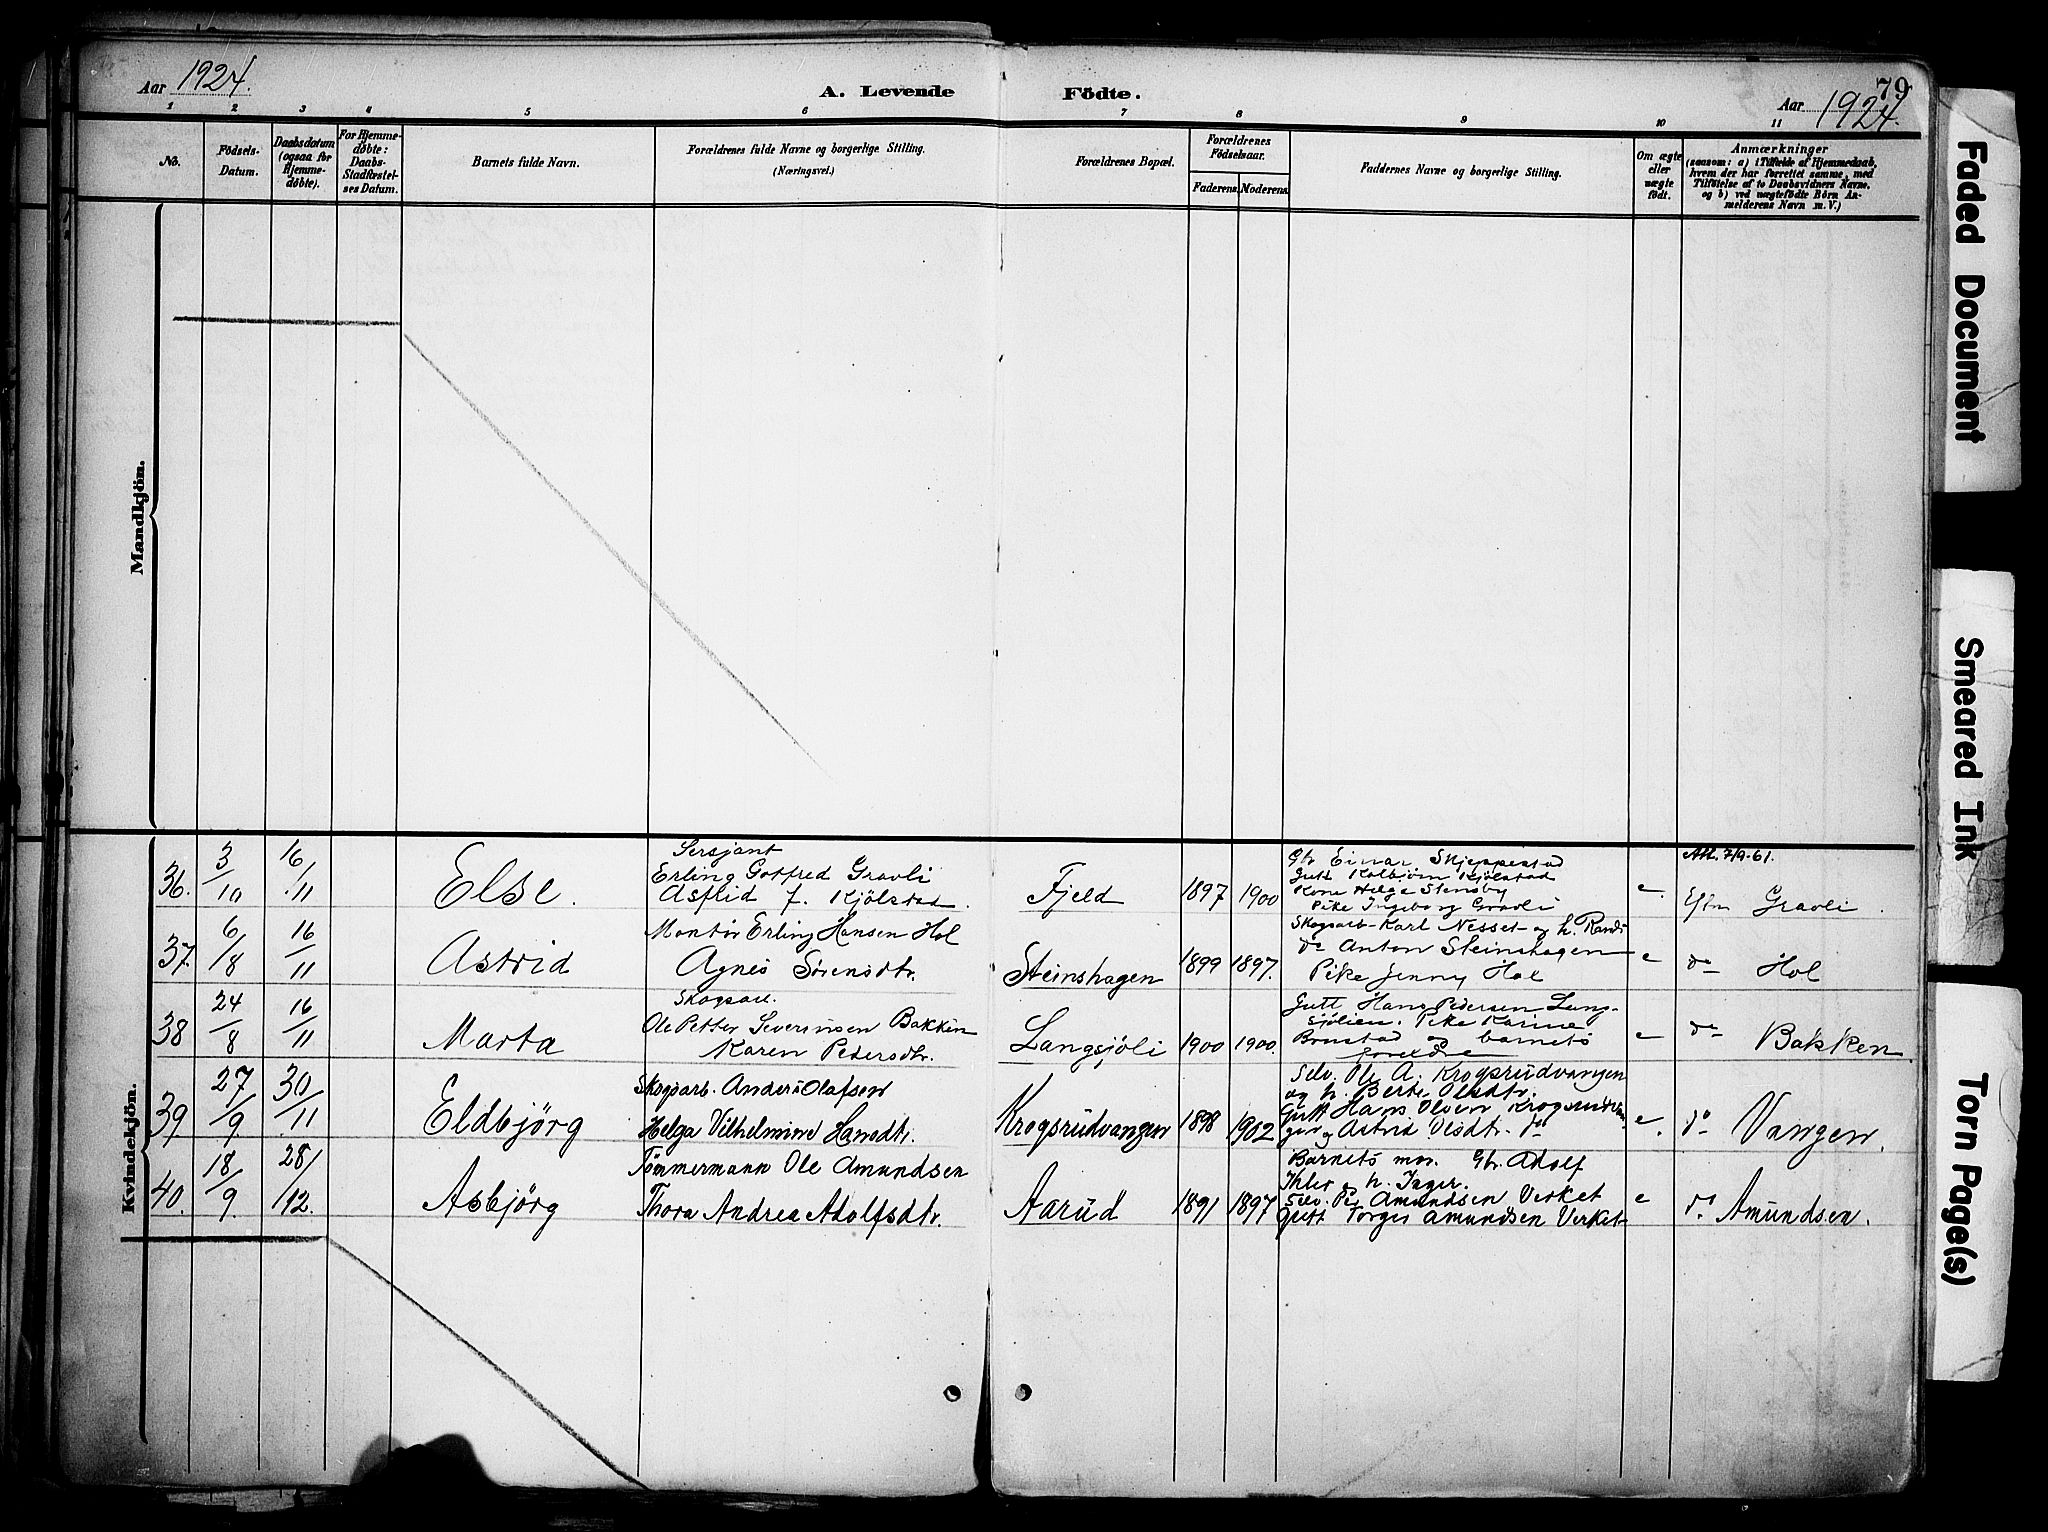 Aar 1924.
A. Levende Födte.
79
Aar 1924.
1 2 3 4 5 6 7 8 9 10 11
No.
Födsels-
Datum.
Daabsdatum
(ogsaa for
Hjemme-
döbte).
For Hjemme-
döbte:
Daabs-
Stadfæstel-
ses Datum.
Barnets fulde Navn.
Forældrenes fulde Navne og borgerlige Stilling.
(Næringsvei.)
Forældrenes Bopæl.
Forældrenes
Födselsaar.
Faderens. Moderens.
Faddernes Navne og borgerlige Stilling.
Om ægte
eller
uægte
født.
Anmærkninger
(saasom: a) i Tilfælde af Hjemmedaab,
hvem der har forrettet samme, med
Tilföielse af to Daabsvidners Navne.
og b) ved uægtefödte Börn An-
melderens Navn m. V.)
Mandkjön.
Kvindekjön.
36. 3/10 16/11 Else.
Sersjant
Erling Gotfred Gravli
Astrid J. Kjölstad.
Fjeld 1897 1900
Gbr Einar Skjeppestad
Gutt Kolbjörn Kjölstad
Kone Helga Stensby
Pike Ingeborg Gravli
e
Att. 7/9-61.
Eftn Gravli.
37. 6/8 16/11 Astrid
Montör Erling Hansen Hol
Agnes Sörensdtr.
Steinshagen 1899 1897.
Skogsarb. Karl Nesset og h. Randi
do Anton Steinshagen
Pike Jenny Hol
e do Hol
38 24/8 16/11 Marta
Skogsarb.
Ole Petter Severinsen Bakken
Karen Pedersdtr.
Langsjöli 1900 1900.
Gutt Hans Pedersen Lang-
sjölien. Pike Karine
Bonstad og barnets
foreldre
e do Bakken
39 27/9. 30/11 Eldbjörg
Skogsarb. Anders Olafsen
Helga Vilhelmine Hansdtr.
Krogsrudvangen 1898 1902
Selv. Ole A. Krogsrudvangen
og h. Berte Olsdtr.
Gutt Hans Olsen Krogsrudvan
gen og Astrid Olsdtr. do
e. do Vangen.
40. 18/9. 28/12. Asbjörg
Tömmermann Ole Amundsen
Thora Andrea Adolfsdtr.
Aarud 1891 1897
Barnets mor. Gbr. Adolf
Ihler og h. Inger.
Selv. Per Amundsen Verket
Gutt Torger Amundsen Verket
e do Amundsen.
Faded Document
Smeared Ink
Torn Page(s)